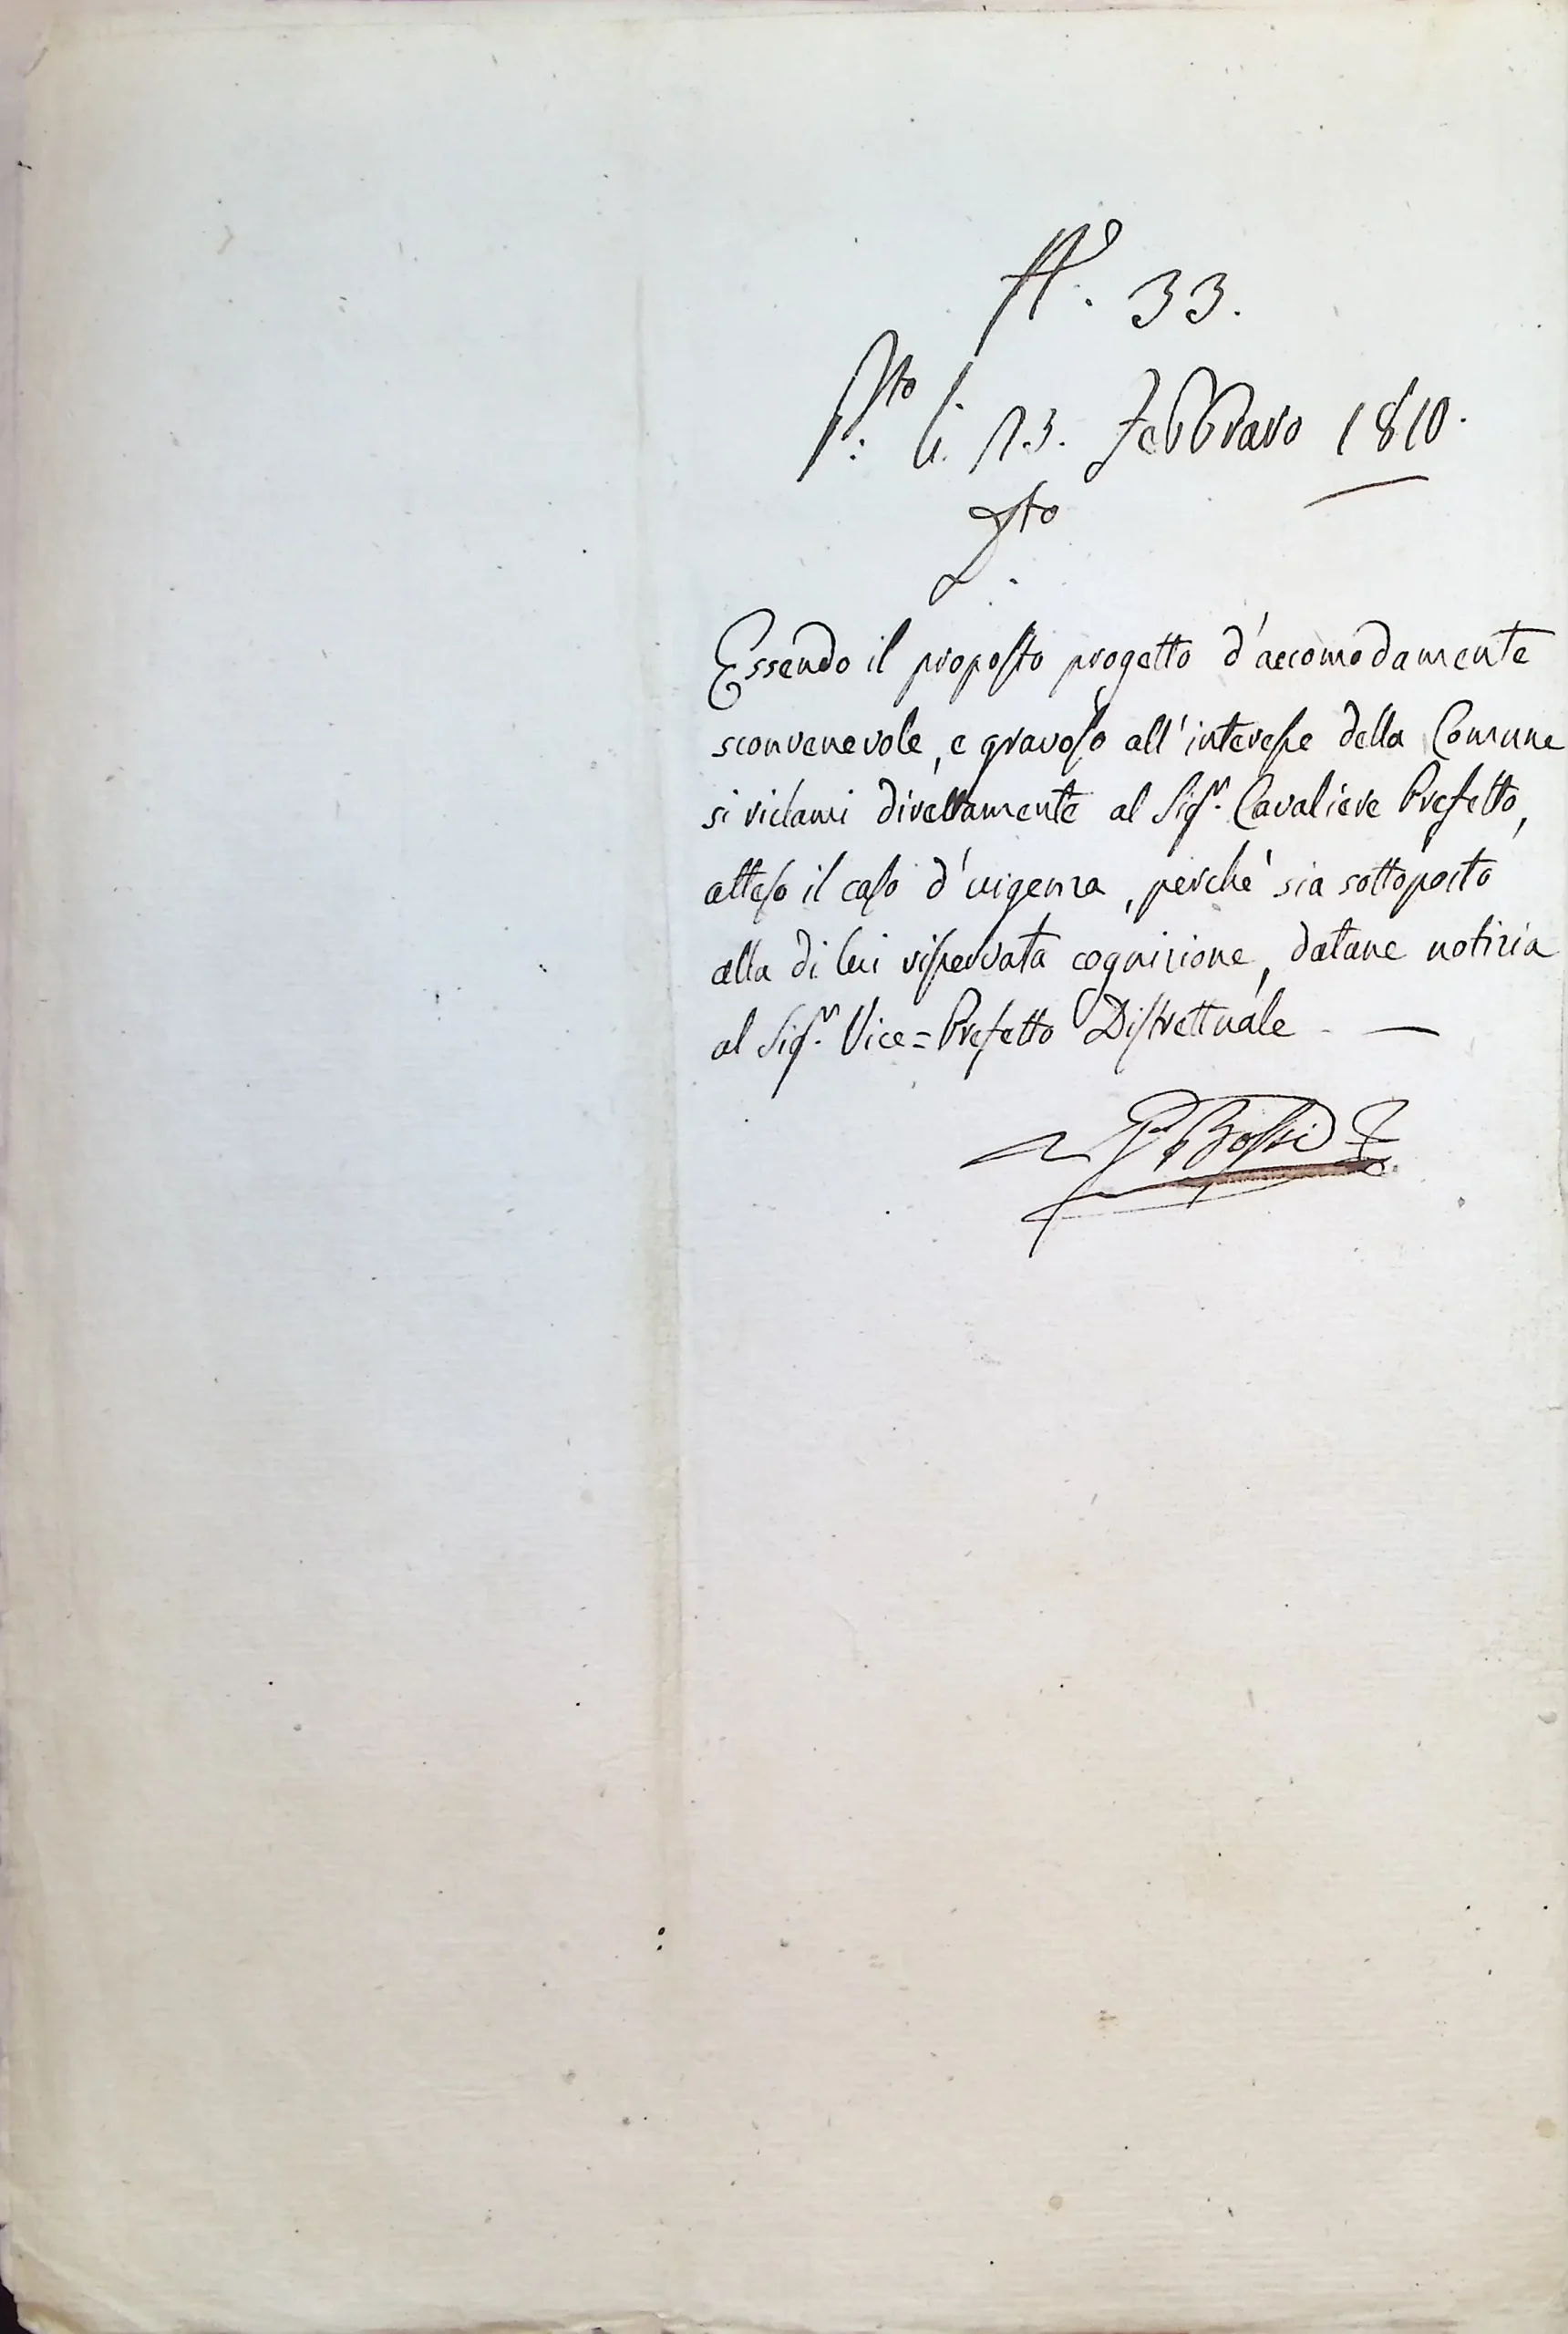 N.° 33.
P.to li. 13. Febbraro 1810.
Dto
Essendo il proposto progetto d'accomodamente
sconvenevole, e gravoso all'interesse della Comune
si riclami direttamente al Sig.r Cavaliere Prefetto,
atteso il caso d'urgenza, perche' sia sottoposto
alla di lui rispettata cognizione, datane notizia
al Sig.r Vice=Prefetto Distrettuale. —
Bossi